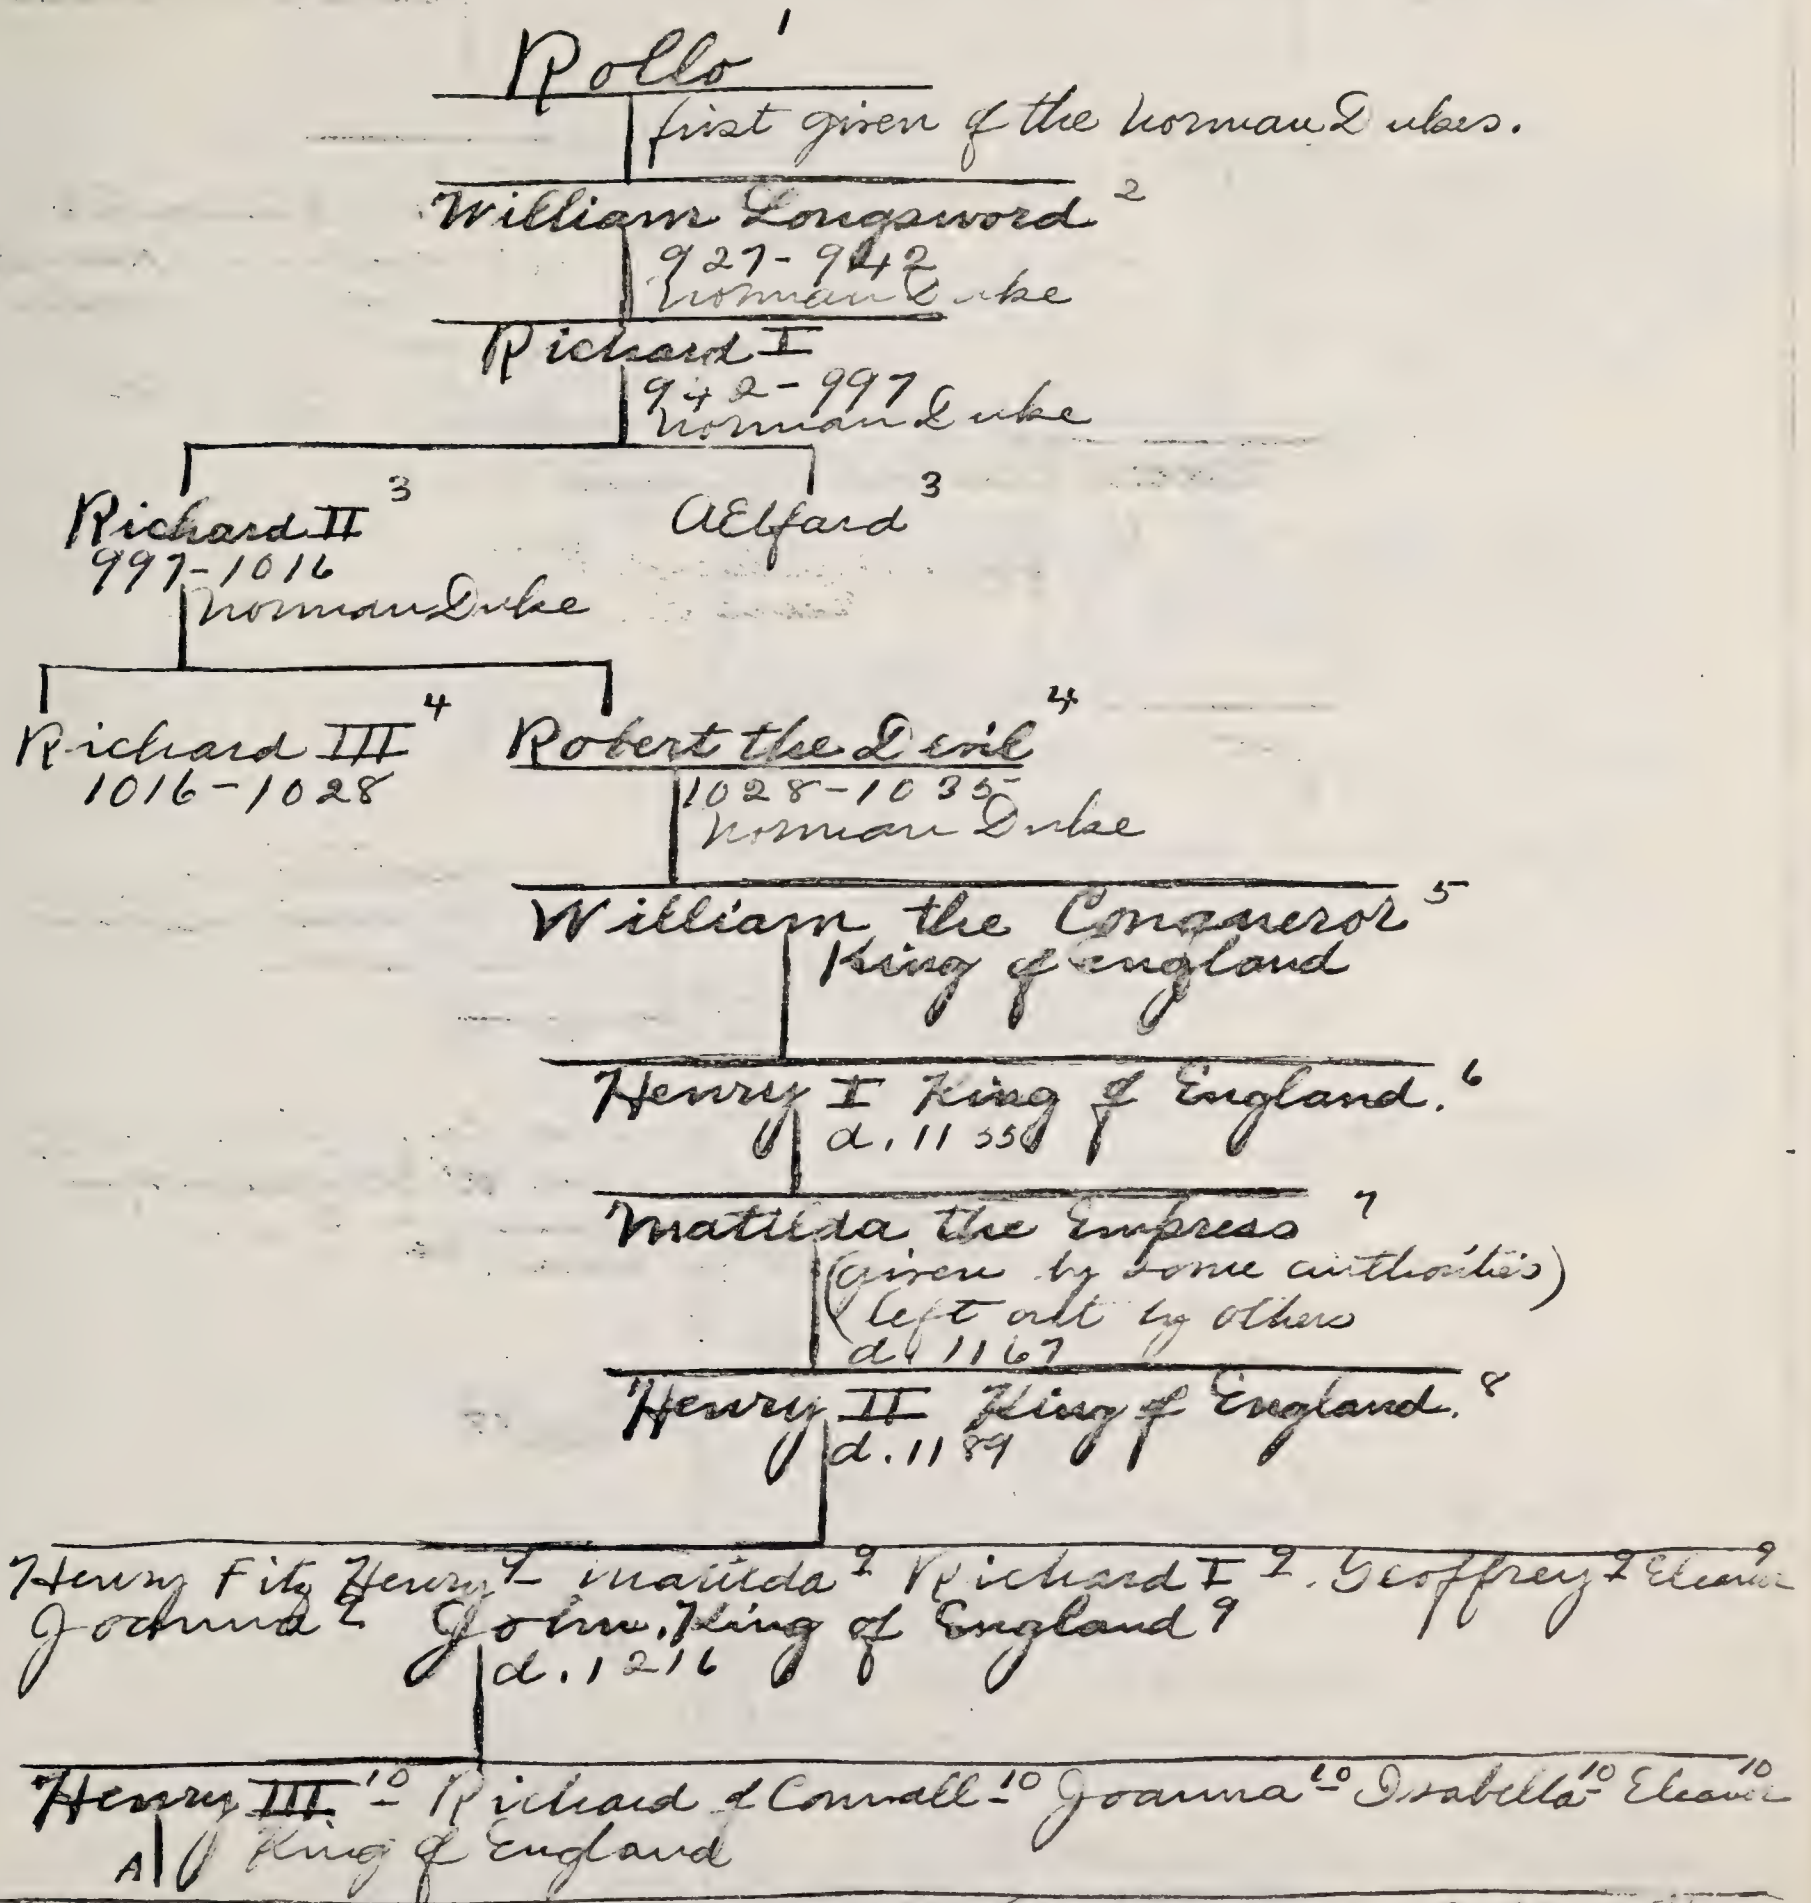 Rollo 1
first given of the Norman Dukes.
William Longsword 2
927-942
Norman Duke
Richard I
942-997
Norman Duke
Richard II 3 AElfard 3
997-1016
Norman Duke
Richard III 4 Robert the Devil 4
1016-1028 1028-1035
Norman Duke
William the Conqueror 5
King of England
Henry I King of England. 6
d. 1135
Matilda the Empress 7
(given by some authorities)
(left out by others
d. 1167
Henry II King of England. 8
d. 1189
Henry Fitz Henry 9 - Matilda 9 Richard I 9. Geoffrey 9 Eleanor 9
Joanna 9 John. King of England 9
d. 1216
Henry III 10 - Richard of Cornwall - 10 Joanna 10 - Isabella 10 - Eleanor 10
King of England
A